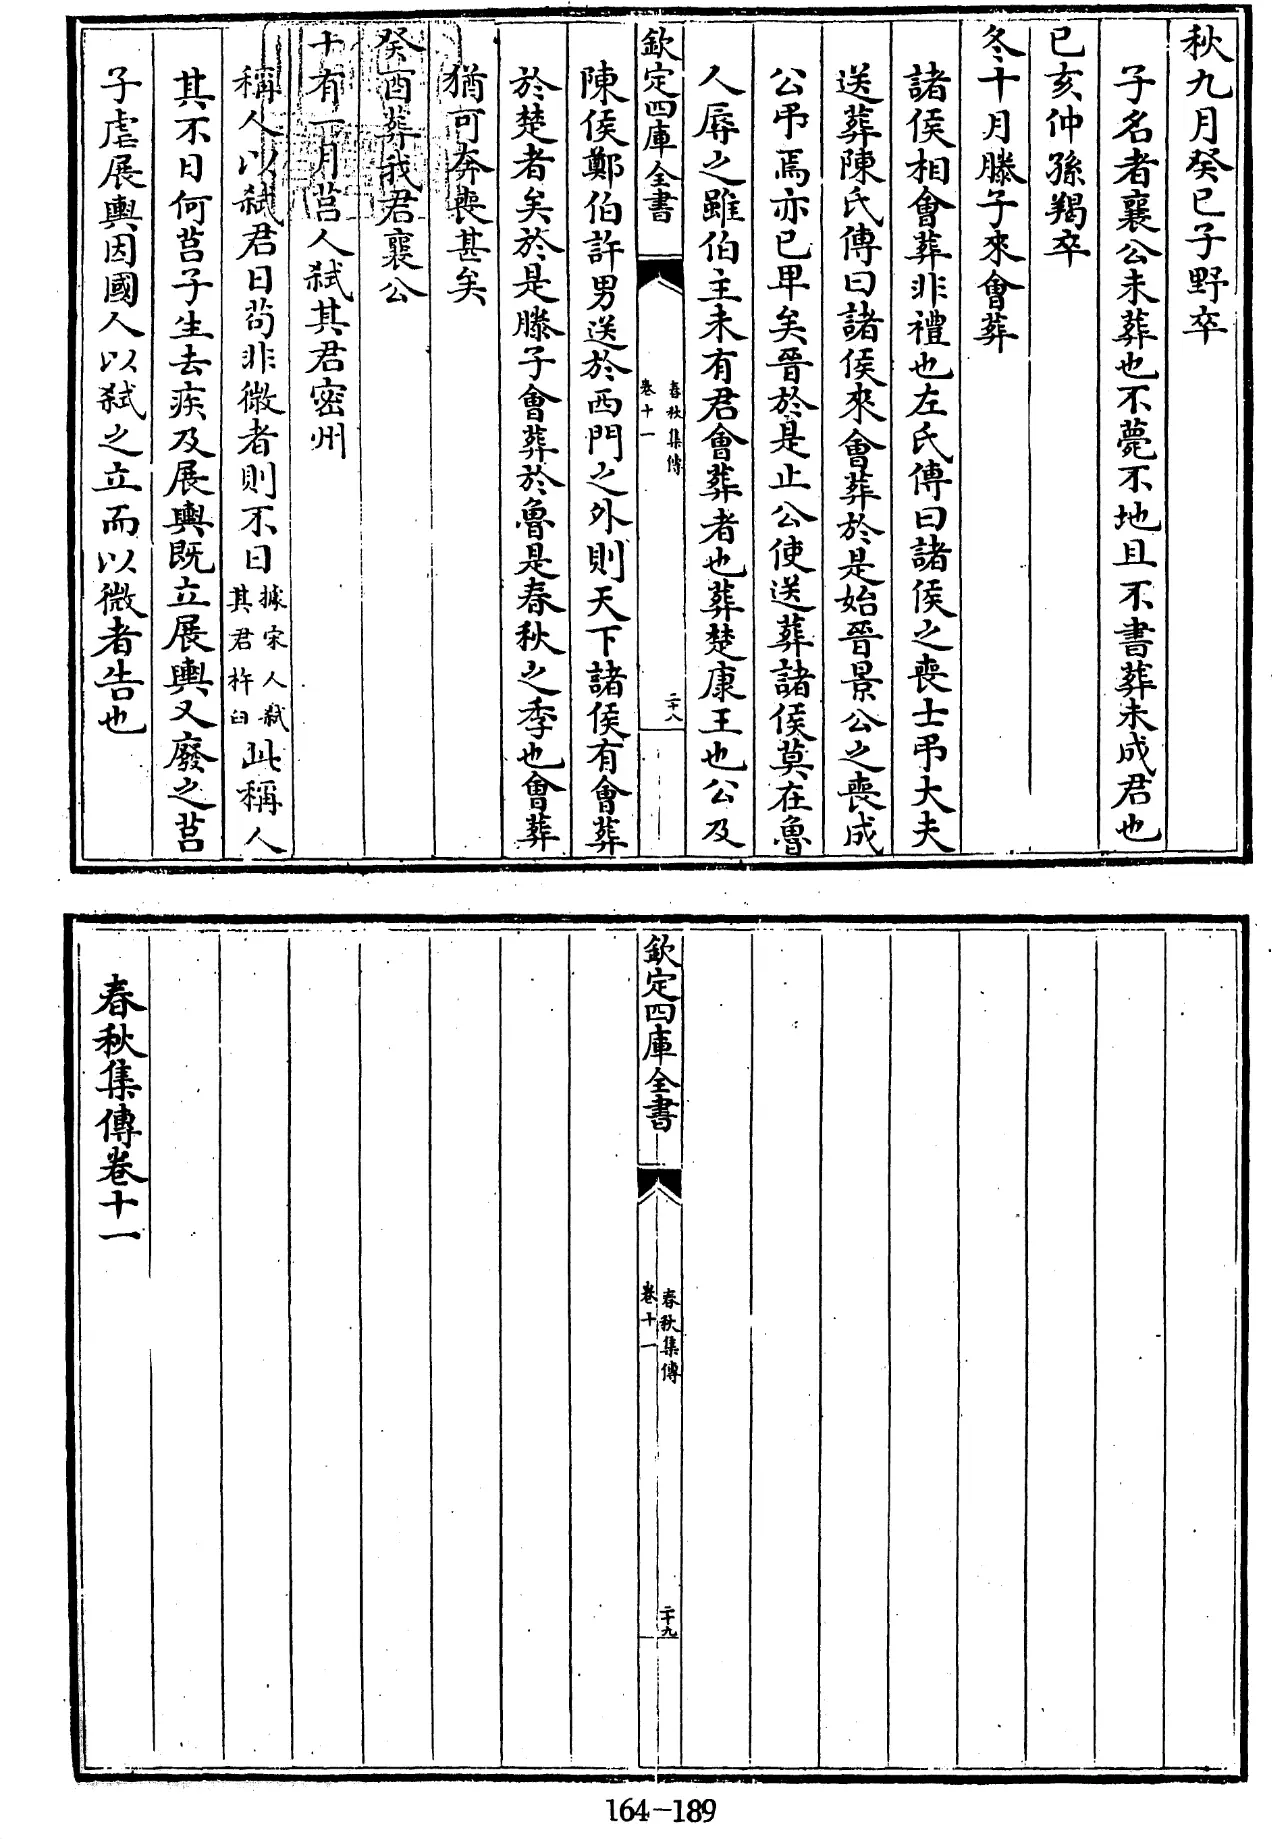 秋九月癸巳子野卒
子名者襄公未葬也不薨不地且不書葬未成君也
己亥仲孫羯卒
冬十月滕子來會葬
諸侯相會葬非禮也左氏傳曰諸侯之喪士弔大夫
送葬陳氏傳曰諸侯來會葬於是始晉景公之喪成
公弔焉亦已卑矣晉於是止公使送葬諸侯莫在魯
人辱之雖伯主未有君會葬者也葬楚康王也公及
欽定四庫全書
春秋集傳
卷十一
二十八
陳侯鄭伯許男送於西門之外則天下諸侯有會葬
於楚者矣於是滕子會葬於魯是春秋之季也會葬
猶可奔喪甚矣
癸酉葬我君襄公
十有一月莒人弒其君密州
稱人以弒君曰苟非微者則不日據宋人弒其君杵臼此稱人
其不日何莒子生去疾及展輿既立展輿又廢之莒
子虐展輿因國人以弒之立而以微者告也
欽定四庫全書
春秋集傳
卷十一
二十九
春秋集傳卷十一
164-189